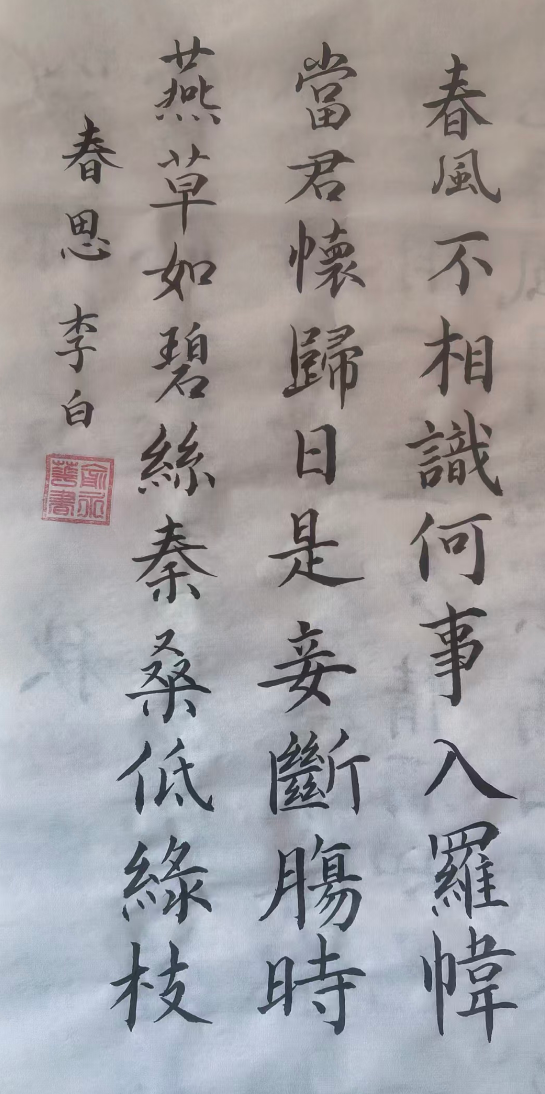 春思 李白
燕草如碧絲秦桑低綠枝
當君懷歸日是妾斷膓時
春風不相識何事入羅幃